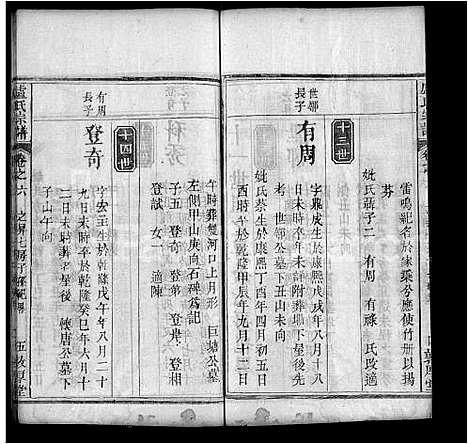 雷鳴紀名於家乘兮應使竹册以揚
芬
十三世
世鄉長子
有周
字難成生於康熙戊戌年八月十八
日未時卒年未詳附葬塘下星後先
考 世鄉公墓下丑山未向
妣氏蔡生於康熙丁酉年四月初五日
酉時卒於乾隆甲辰年九月十二日
午時葬雙河口上月形 巨塘公墓
左側甲山庚向石碑為記
子五 登奇 登第 登 登相
登試 女一 適陳
十四世
有周長子
登奇
字宏 生於 戊午年八月二十
九日未時卒於乾隆癸巳年六月十
二日未時葬 星後 公墓下
子山午向
盧氏宗譜
卷之六
五 敦厚堂